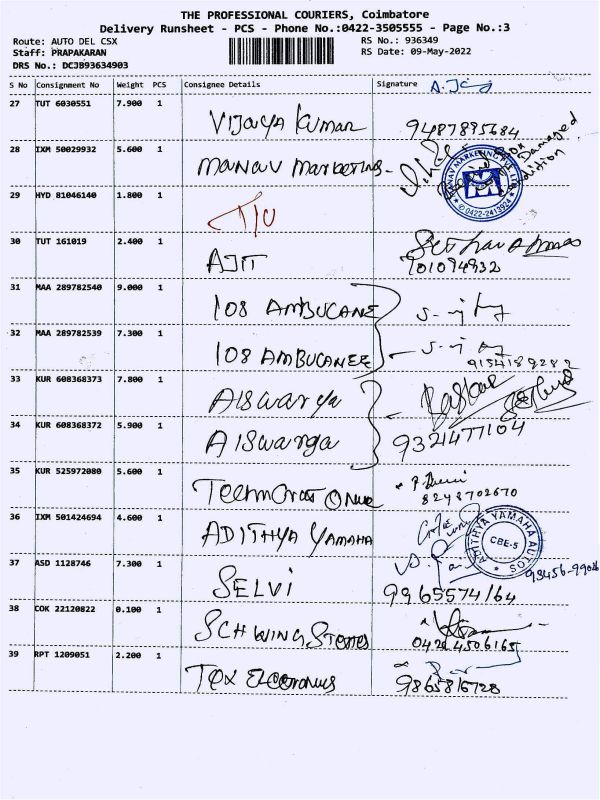 THE PROFESSIONAL COURIERS, Coimbatore
Delivery Runsheet - PCS - Phone No.:0422-3505555 - Page No.:3
Route: AUTO DEL CSX
RS No.: 936349
Staff: PRAPAKARAN
RS Date: 09-May-2022
DRS No.: DCJB93634903
S No Consignment No Weight PCS Consignee Details Signature
27 TUT 6030551 7.900 1 Vijaya Kumar 9487895684
28 IXM 50029932 5.600 1 Manav Marketing- Box Damaged
MANAV MARKETING PVT. LTD. 0422-2413924
29 HYD 81046140 1.800 1
30 TUT 161019 2.400 1 AJIT
31 MAA 289782540 9.000 1 108 AMBUCANE
32 MAA 289782539 7.300 1 108 AMBUCANEE
33 KUR 608368373 7.800 1 Aiswarya
34 KUR 608368372 5.900 1 Aiswarya 9321477104
35 KUR 525972080 5.600 1 8248702670
36 IXM 501424694 4.600 1 ADITHYA YAMAHA
ADITHYA YAMAHA AUTOS CBE-5
37 ASD 1128746 7.300 1 SELVI 9965574164
38 COK 22120822 0.100 1 SCHWING 0422 4506165
39 RPT 1209051 2.200 1 9865816728